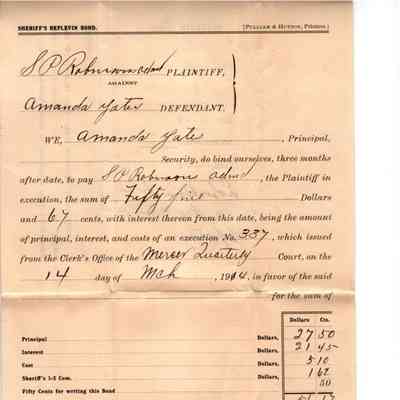 SHERIFF'S REPLEVIN BOND. [PULLIAM & HUTTON, Printers.]
S P Robinson admd PLAINTIFF,
AGAINST
Amanda Yates DEFENDANT.
WE, Amanda Yate , Principal,
Security, do bind ourselves, three months
after date, to pay S P Robinson admd , the Plaintiff in
execution, the sum of Fifty five Dollars
and 67 cents, with interest thereon from this date, being the amount
of principal, interest, and costs of an execution No. 337, which issued
from the Clerk's Office of the Mercer Quarterly Court, on the
14 day of Mch , 1914, in favor of the said
for the sum of
Dollars Cts.
Principal Dollars, 27 50
Interest Dollars, 21 45
Cost Dollars, 5 10
Sheriff's 1-2 Com. Dollars, 1 62
Fifty Cents for writing this Bond 50